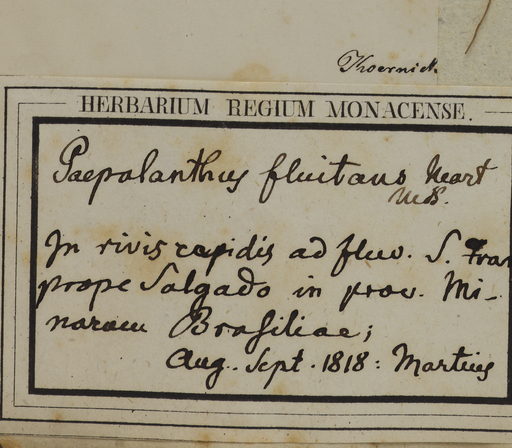 Koernick
HERBARIUM REGIUM MONACENSE.
Paepalanthus fluitans Mart
ms.
In rivis rapidis ad fluv. S. Fran
prope Salgado in prov. Mi-
narum Brasiliae;
Aug. Sept. 1818: Martius